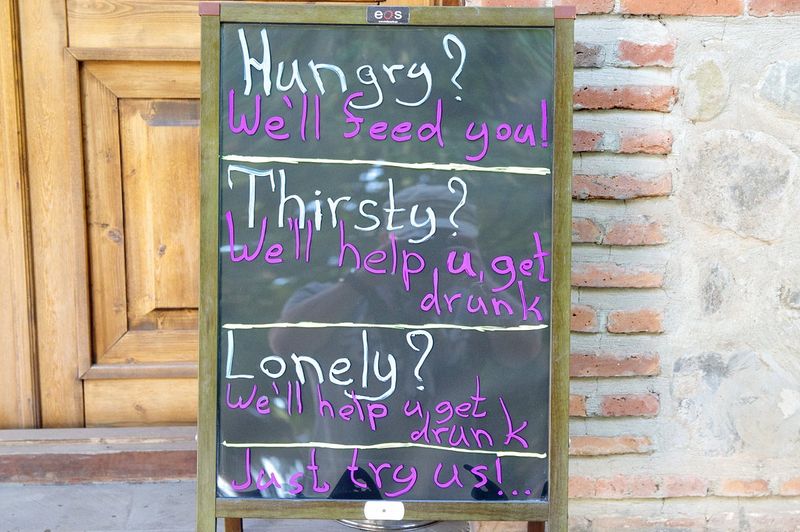 eos
Hungry?
We'll feed you!
Thirsty?
We'll help u, get
drunk
Lonely?
We'll help u get
drunk
Just try us!..